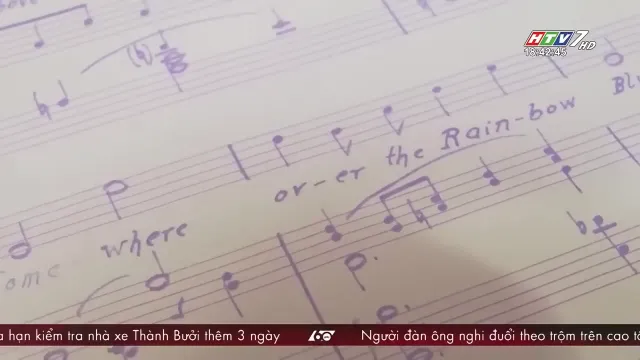 HTV7 HD
18:42:45
or-er the Rain-bow
ome where
a hạn kiểm tra nhà xe Thành Bưởi thêm 3 ngày
60
Người đàn ông nghi đuổi theo trộm trên cao t